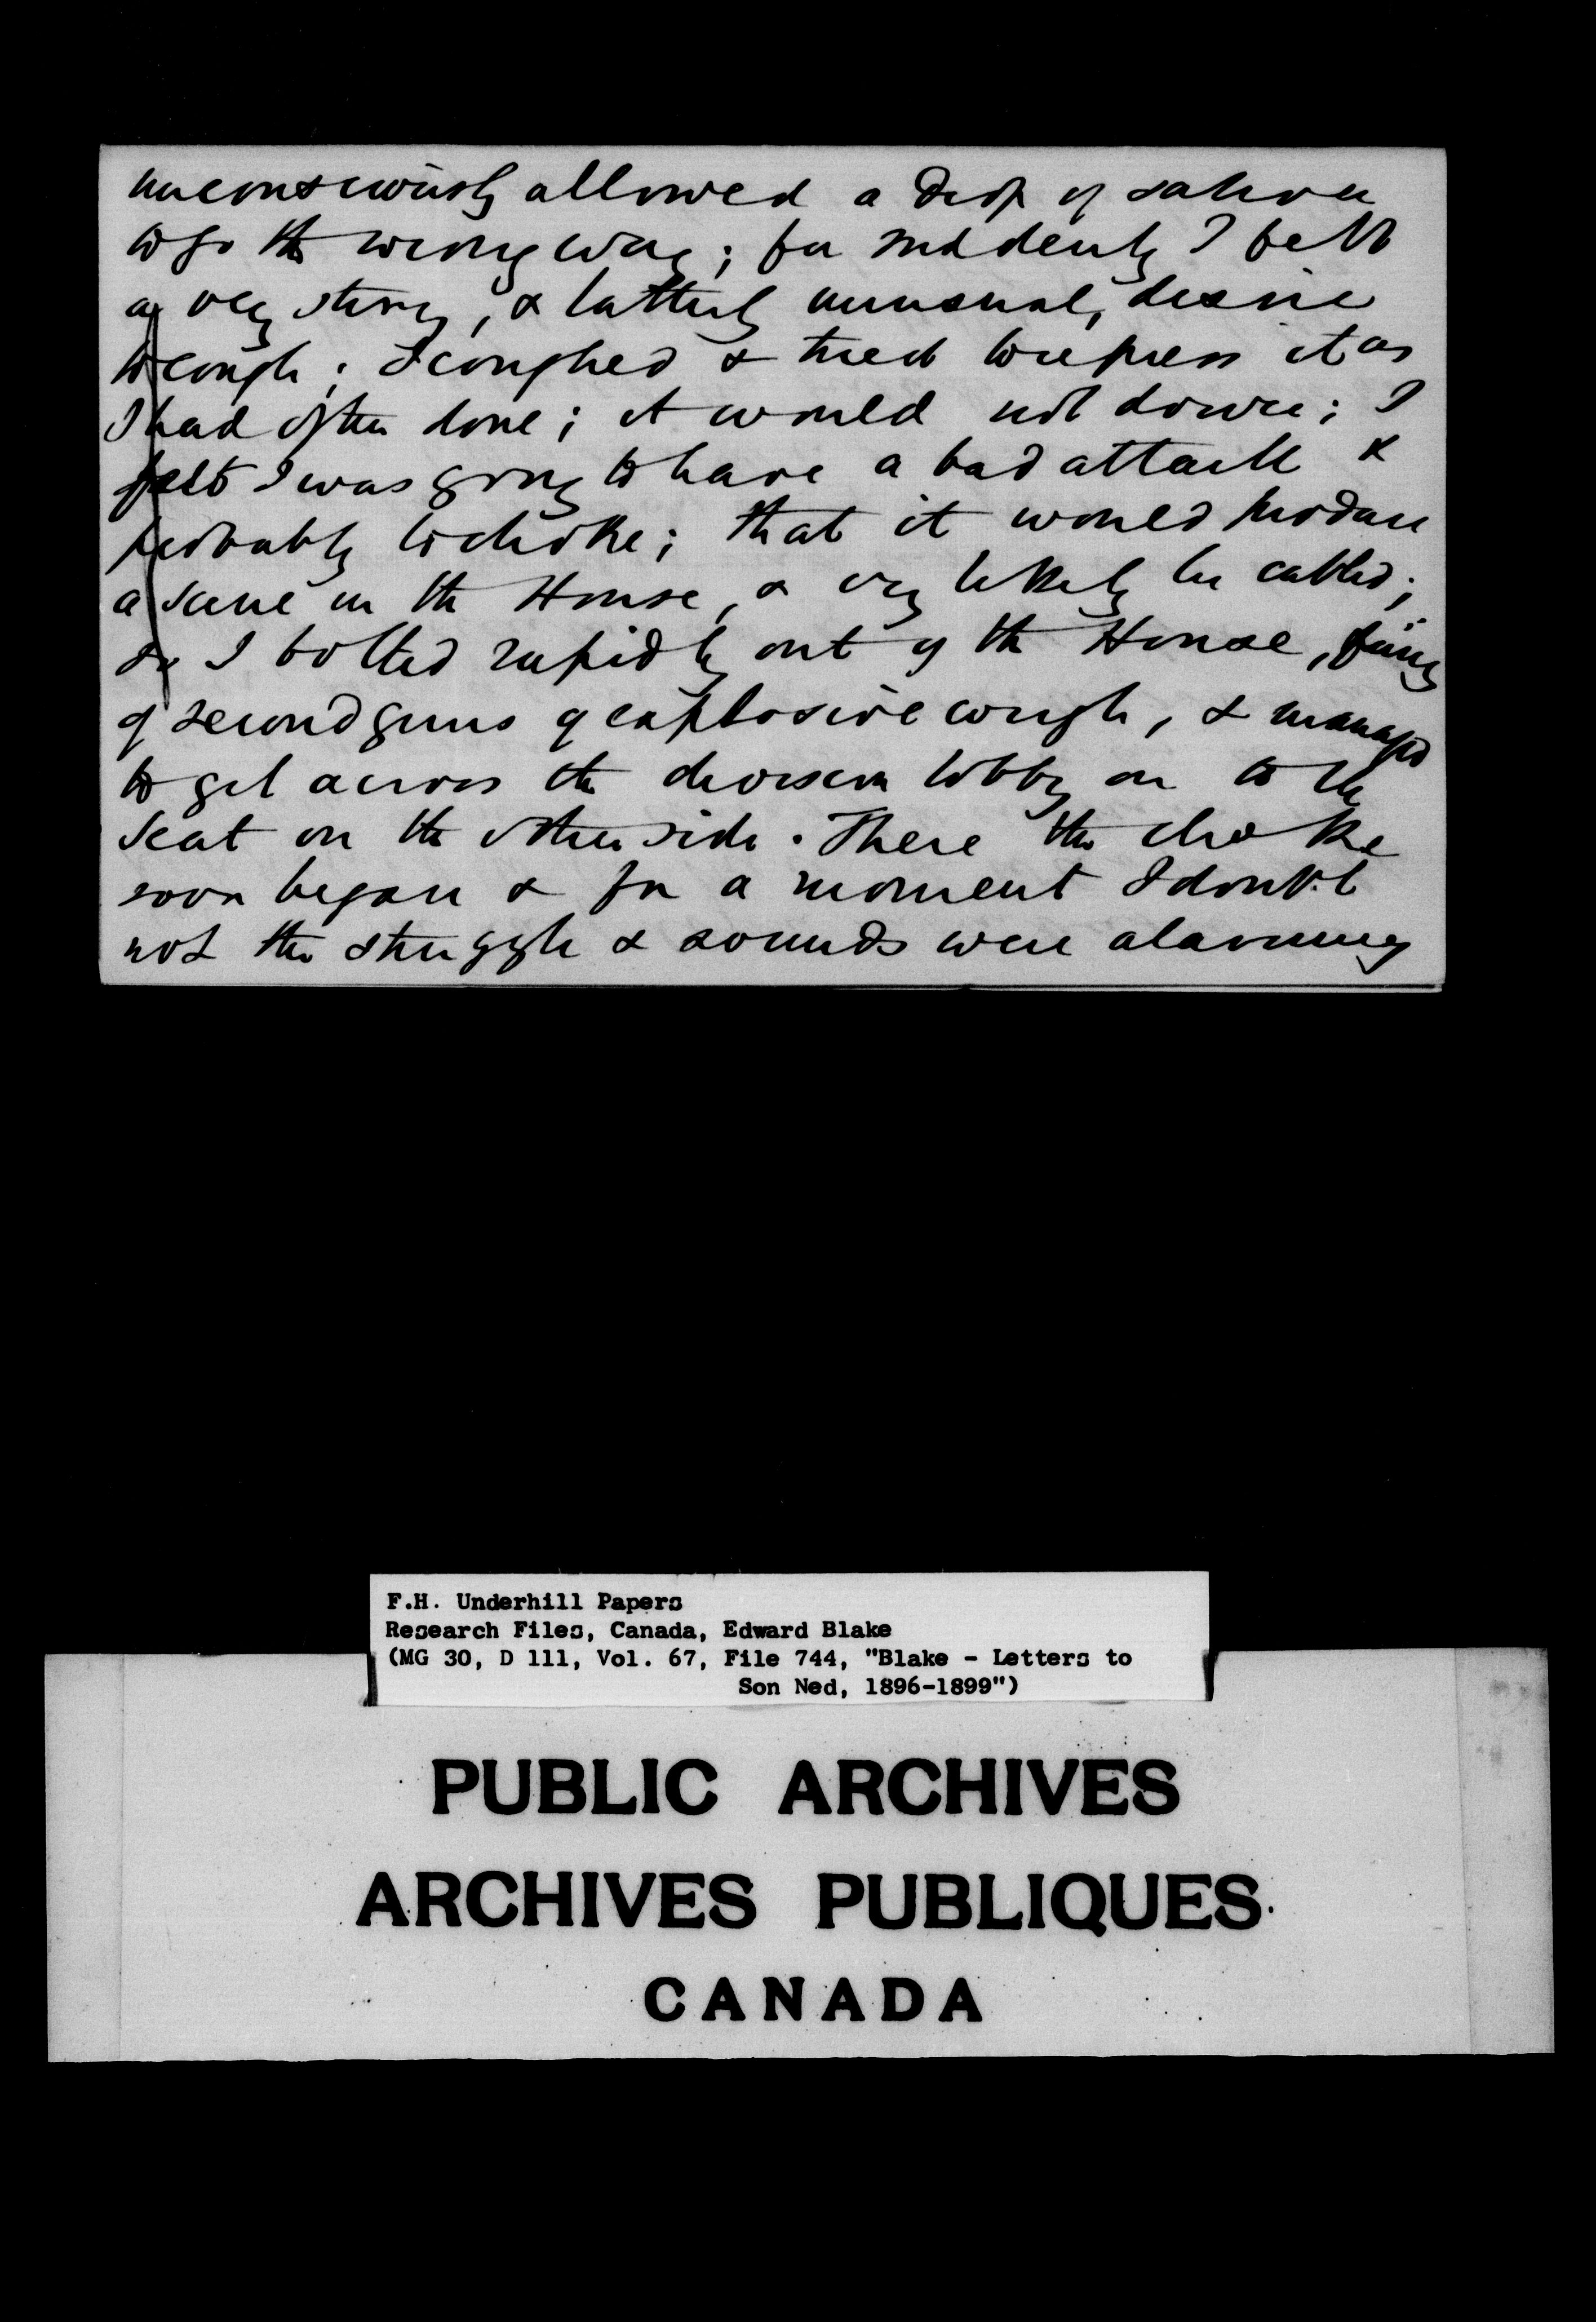 unconsciously allowed a drop of saliva
to go the wrong way; for suddenly I felt
a very strong, & latterly unusual, desire
to cough; I coughed & tried to repress it as
I had often done; it would not down; I
felt I was going to have a bad attack &
probably to choke; that it would produce
a scene in the House, & very likely be cabled;
so I bolted rapidly out of the House, firing
of second guns of explosive cough, & managed
to get across the division lobby on to the
seat on the other side. There the choke
soon began & for a moment I doubt
not the struggle & sounds were alarming
F.H. Underhill Papers
Research Files, Canada, Edward Blake
(MG 30, D 111, Vol. 67, File 744, "Blake - Letters to
Son Ned, 1896-1899")
PUBLIC ARCHIVES
ARCHIVES PUBLIQUES
CANADA